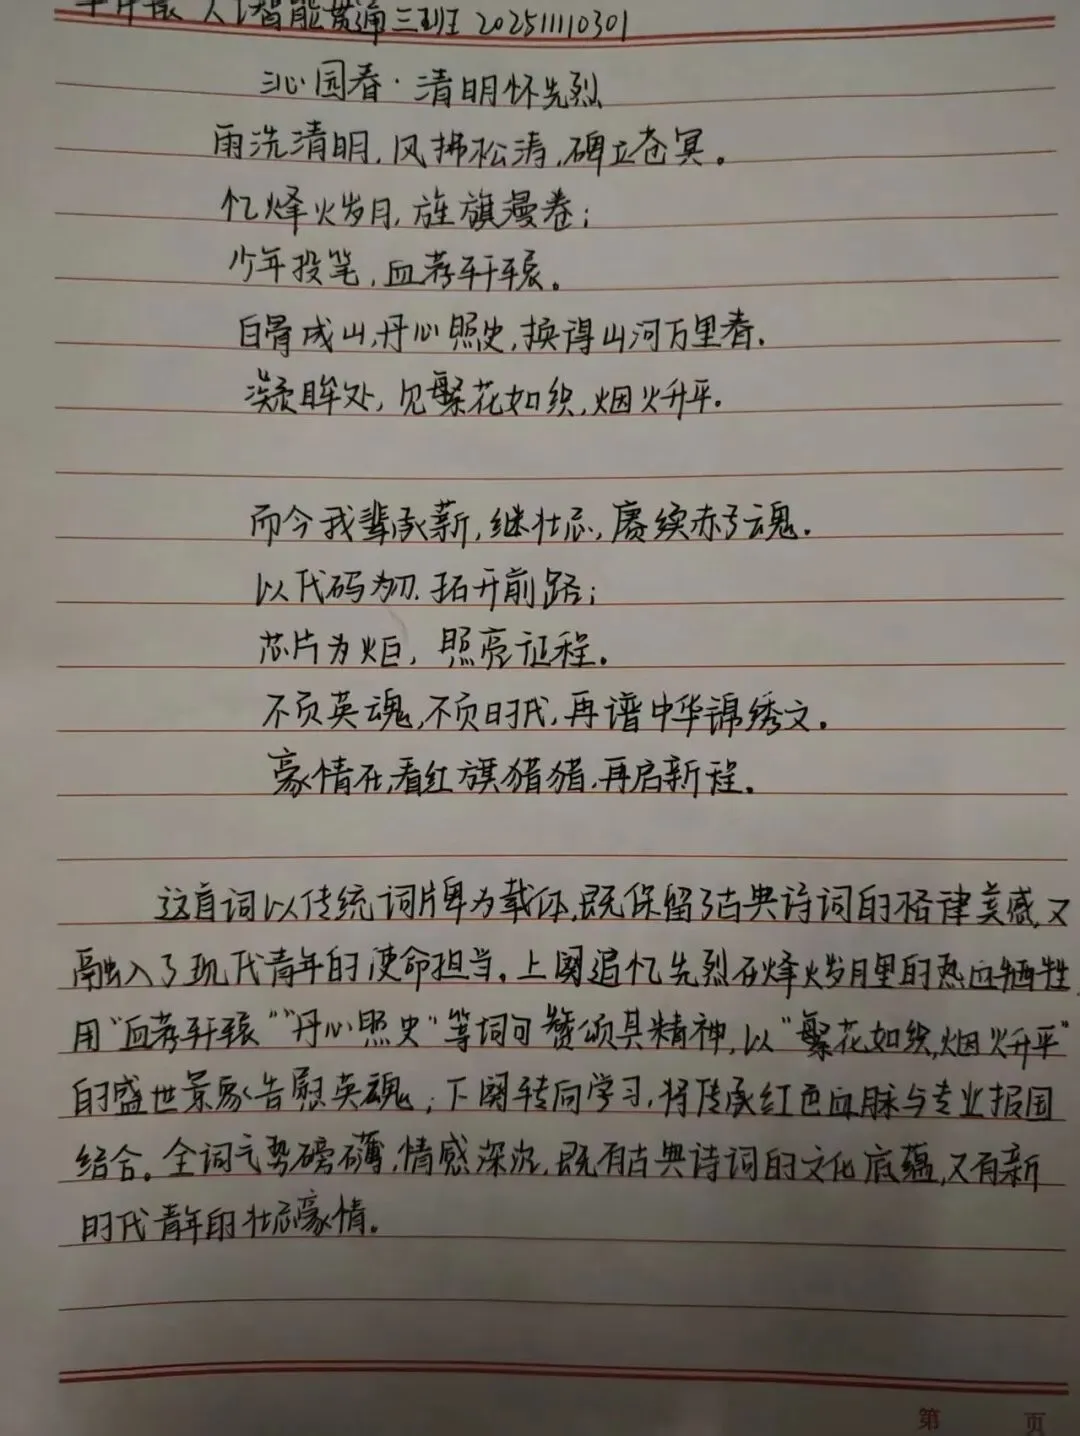 人工智能贯通三班 202511110301
沁园春·清明怀先烈
雨洗清明,风拂松涛,碑立苍冥。
忆烽火岁月,旌旗漫卷;
少年投笔,血荐轩辕。
白骨成山,丹心照史,换得山河万里春.
凝眸处,见繁花如织,烟火升平.
而今我辈承薪,继壮志,赓续赤子魂.
以代码为刃.拓开前路;
芯片为炬,照亮征程.
不负英魂,不负时代,再谱中华锦绣文.
豪情在,看红旗猎猎,再启新程.
这首词以传统词牌为载体,既保留了古典诗词的格律美感,又
融入了现代青年的使命担当.上阕追忆先烈在烽火岁月里的热血牺牲,
用"血荐轩辕""丹心照史"等词句赞颂其精神,以"繁花如织,烟火升平"
的盛世景象告慰英魂;下阕转向学习,将传承红色血脉与专业报国
结合。全词气势磅礴,情感深沉,既有古典诗词的文化底蕴,又有新
时代青年的壮志豪情。
第 页